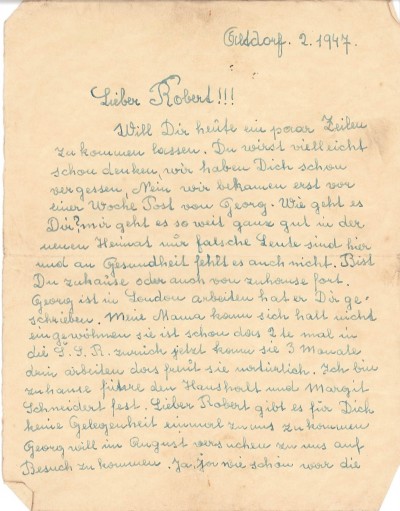 Altdorf. 2. 1947.
Lieber Robert!!!
Will Dir heute ein paar Zeilen
zu kommen lassen. Du wirst vielleicht
schon denken, wir haben Dich schon
vergessen, Nein wir bekamen erst vor
einer Woche Post von Georg. Wie geht es
Dir? mir geht es so weit ganz gut in der
neuen Heimat nur falsche Leute sind hier
und an Gesundheit fehlt es auch nicht. Bist
Du zuhause oder auch von zuhause fort.
Georg ist in London arbeiten hat er Dir ge-
schrieben. Meie Mama kann sich halt nicht
eingewöhnen sie ist schon das 2te mal in
die Č.S.R. zurück jetzt kann sie 3 Monate
drin arbeiten das freut sie natürlich. Ich bin
zuhause führe den Haushalt und Margit
Schneidert fest. Lieber Robert gibt es für Dich
keine Gelegenheit einmal zu uns zu kommen
Georg will im August versuchen zu uns auf
Besuch zu kommen. Ja, ja wie schön war die